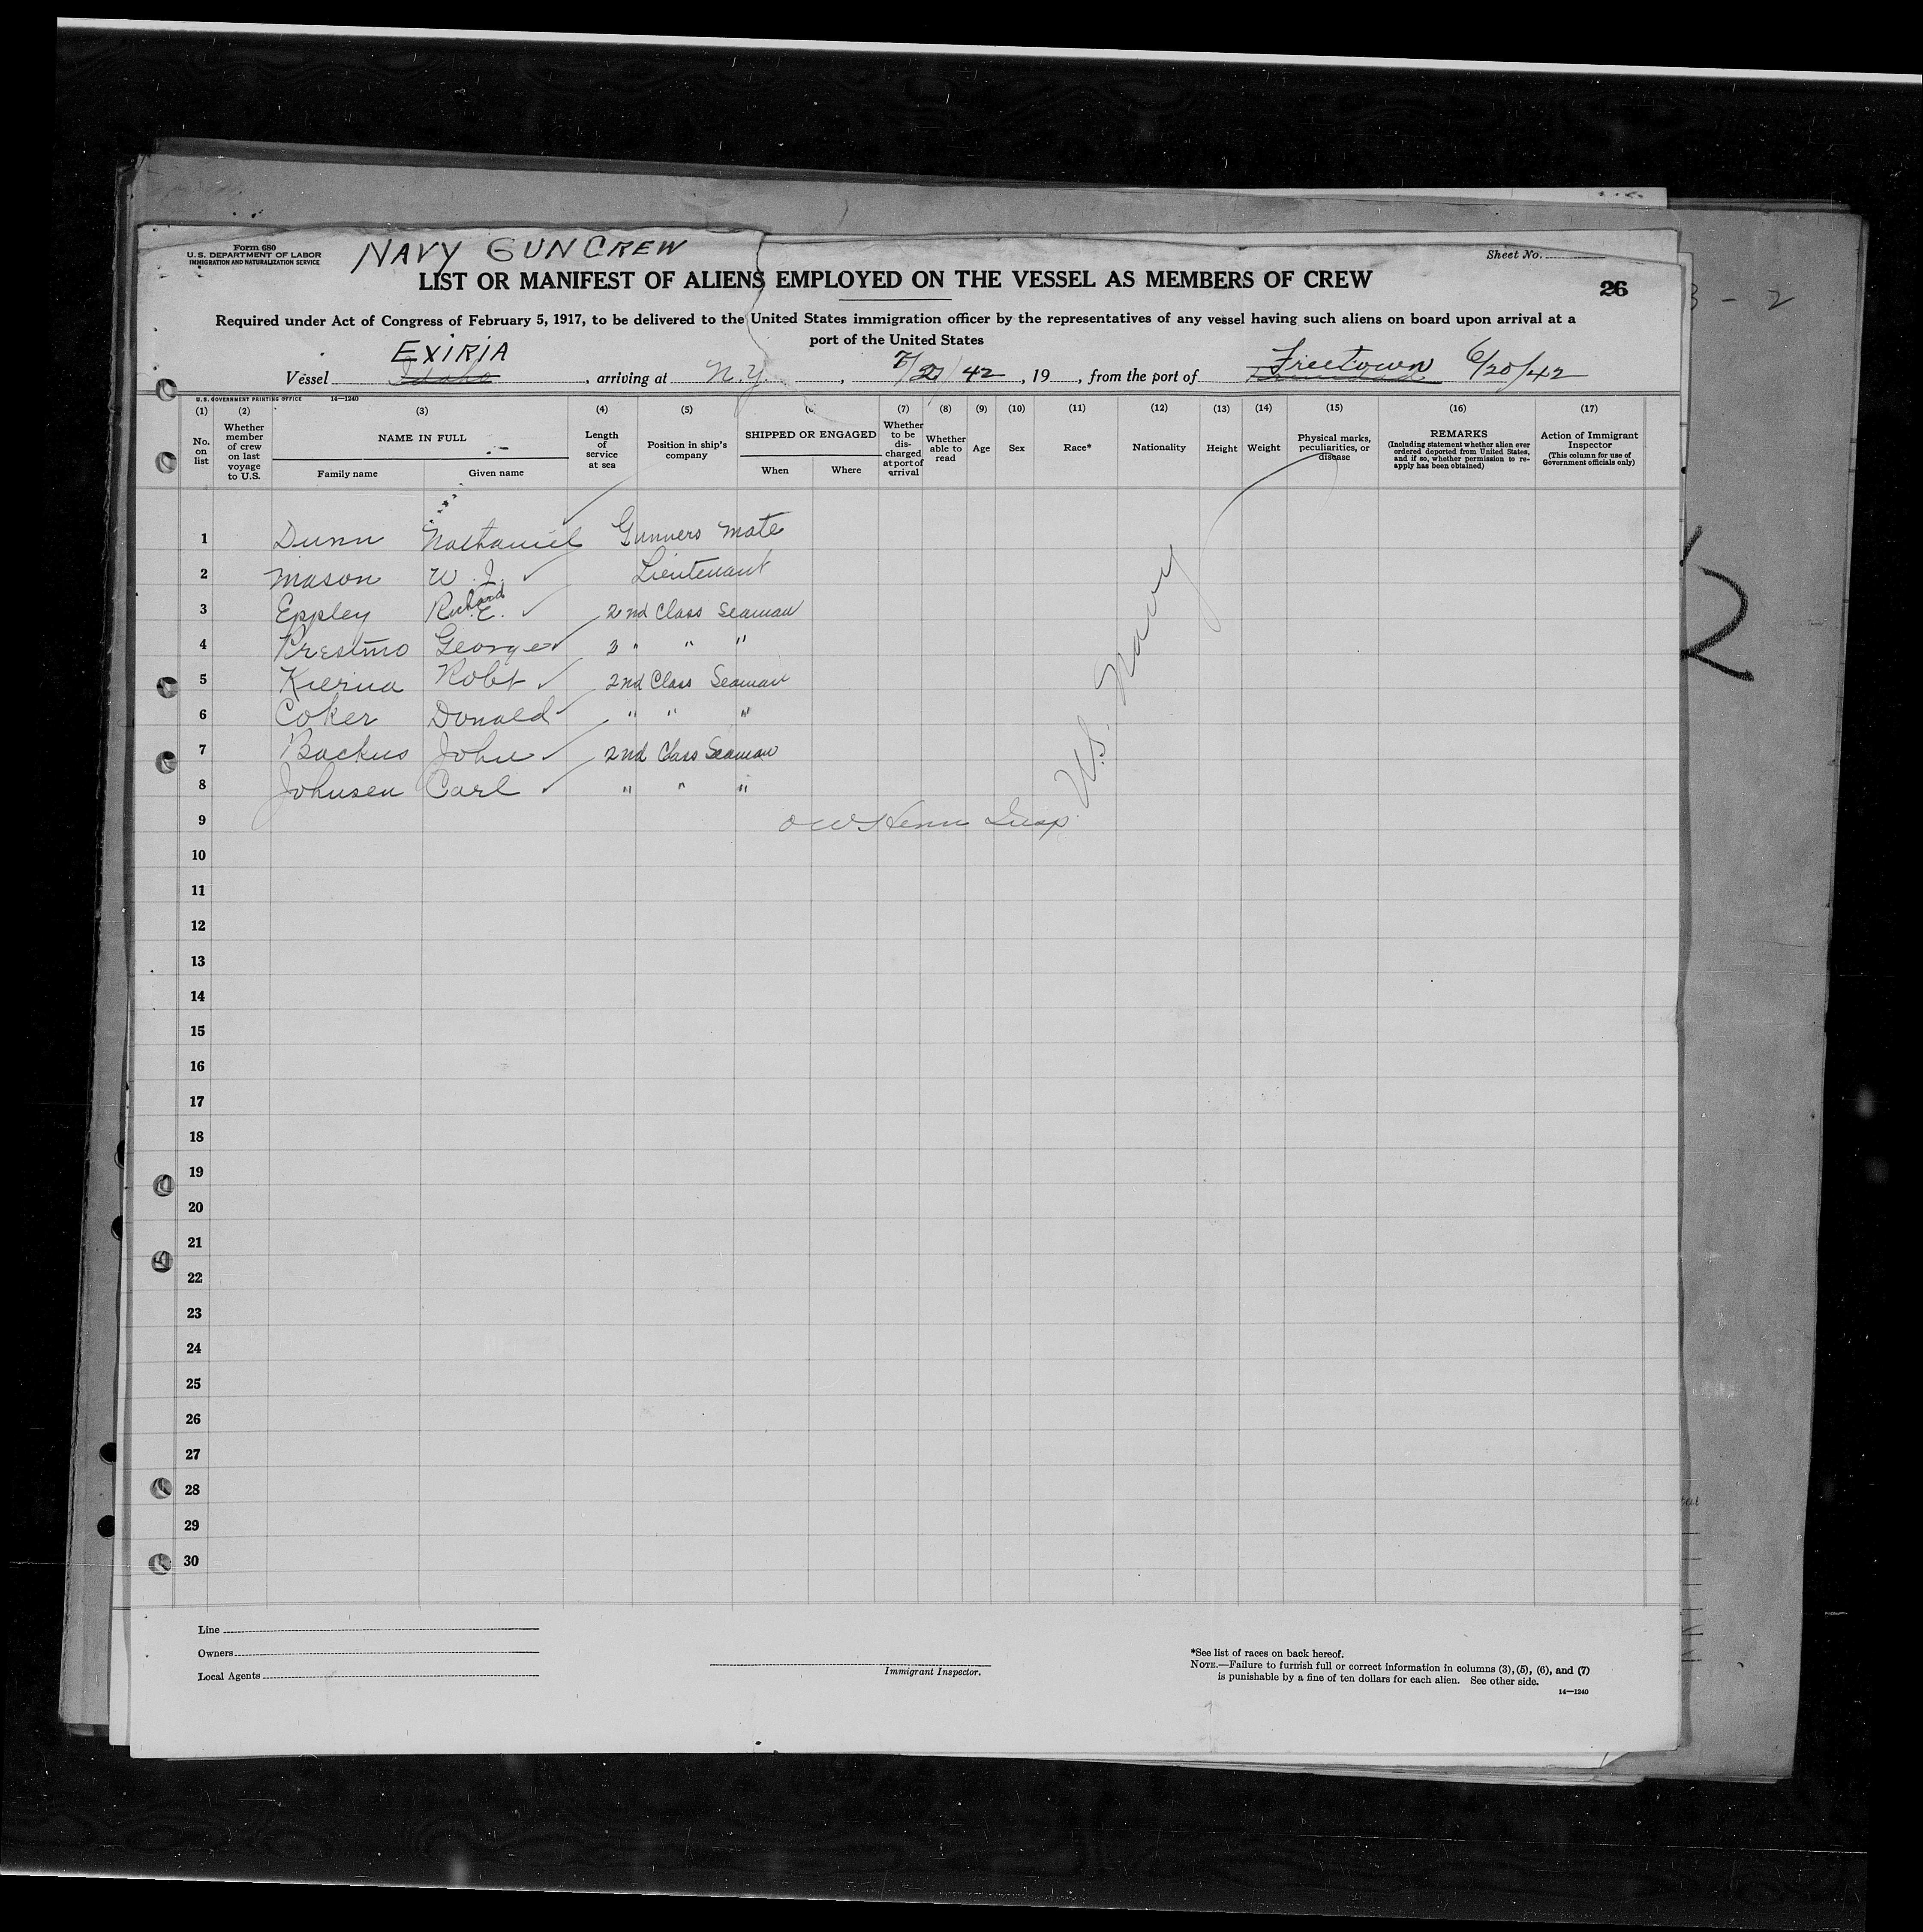 Form 680
U. S. DEPARTMENT OF LABOR
IMMIGRATION AND NATURALIZATION SERVICE
NAVY GUN CREW
Sheet No.
LIST OR MANIFEST OF ALIENS EMPLOYED ON THE VESSEL AS MEMBERS OF CREW
26
Required under Act of Congress of February 5, 1917, to be delivered to the United States immigration officer by the representatives of any vessel having such aliens on board upon arrival at a
port of the United States
EXIRIA
Vessel Idaho, arriving at N.Y., 42, 19, from the port of Freetown 6/20/42
U. S. GOVERNMENT PRINTING OFFICE 14—1240
(1) (2) (3) (4) (5) (6 (7) (8) (9) (10) (11) (12) (13) (14) (15) (16) (17)
No. on list
Whether member of crew on last voyage to U.S.
NAME IN FULL
Family name Given name
Length of service at sea
Position in ship's company
SHIPPED OR ENGAGED
When Where
Whether to be dis-charged at port of arrival
Whether able to read
Age
Sex
Race*
Nationality
Height
Weight
Physical marks, peculiarities, or disease
REMARKS
(Including statement whether alien ever ordered deported from United States, and if so, whether permission to re-apply has been obtained)
Action of Immigrant Inspector
(This column for use of Government officials only)
1 Dunn Nathaniel Gunners Mate
2 Mason W. Lieutenant
3 Eppley Richard E. 2nd Class Seaman
4 George 2 " " "
5 Robt 2nd Class Seaman
6 Coker Donald " " "
7 Backus John 2nd Class Seaman
8 Johnsen Carl " " "
U.S. Navy
9 Insp.
10
11
12
13
14
15
16
17
18
19
20
21
22
23
24
25
26
27
28
29
30
Line
Owners
Local Agents
Immigrant Inspector.
*See list of races on back hereof.
NOTE.—Failure to furnish full or correct information in columns (3), (5), (6), and (7)
is punishable by a fine of ten dollars for each alien. See other side.
14—1240
2